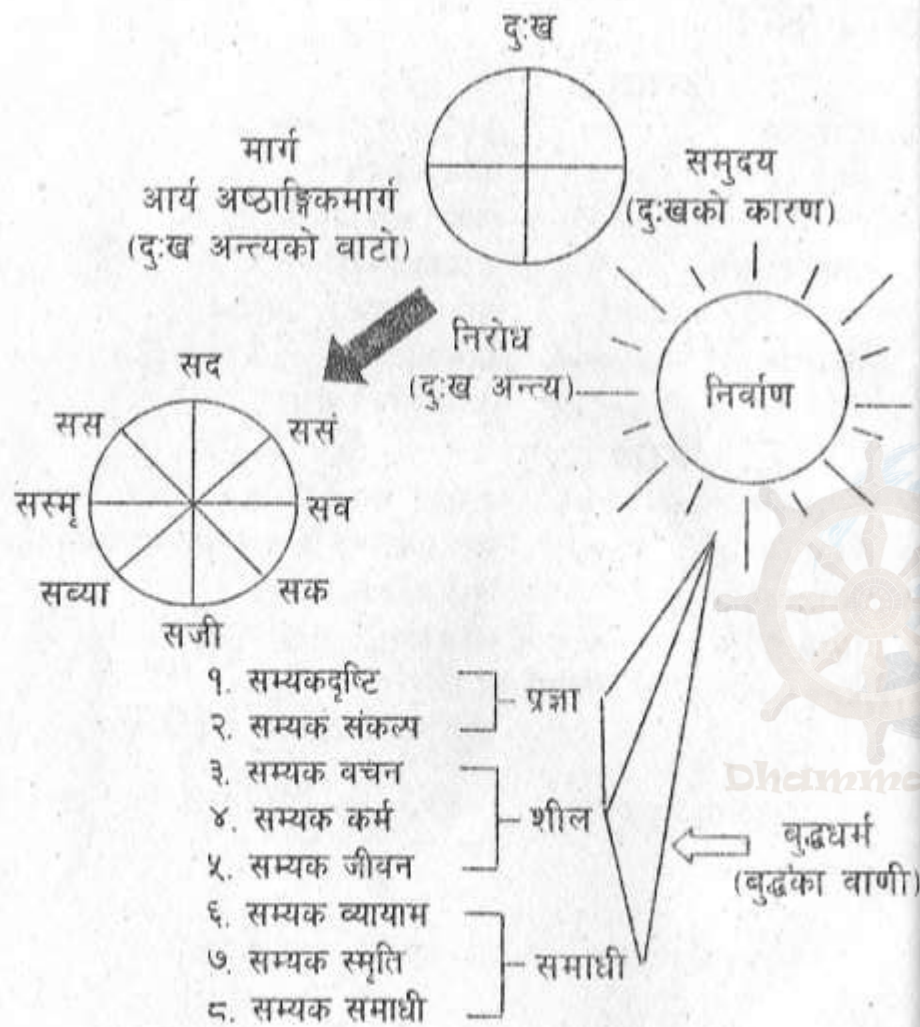 दुःख
मार्ग
आर्य अष्ठाङ्गिकमार्ग
(दुःख अन्त्यको वाटो)
समुदय
(दुःखको कारण)
निरोध
(दुःख अन्त्य)
निर्वाण
सद
सस
ससं
सस्मृ
सव
सव्या
सक
सजी
१. सम्यकदृष्टि
२. सम्यक संकल्प
प्रज्ञा
३. सम्यक वचन
४. सम्यक कर्म
५. सम्यक जीवन
शील
६. सम्यक व्यायाम
७. सम्यक स्मृति
८. सम्यक समाधी
समाधी
बुद्धधर्म
(बुद्धका वाणी)
Dhamma